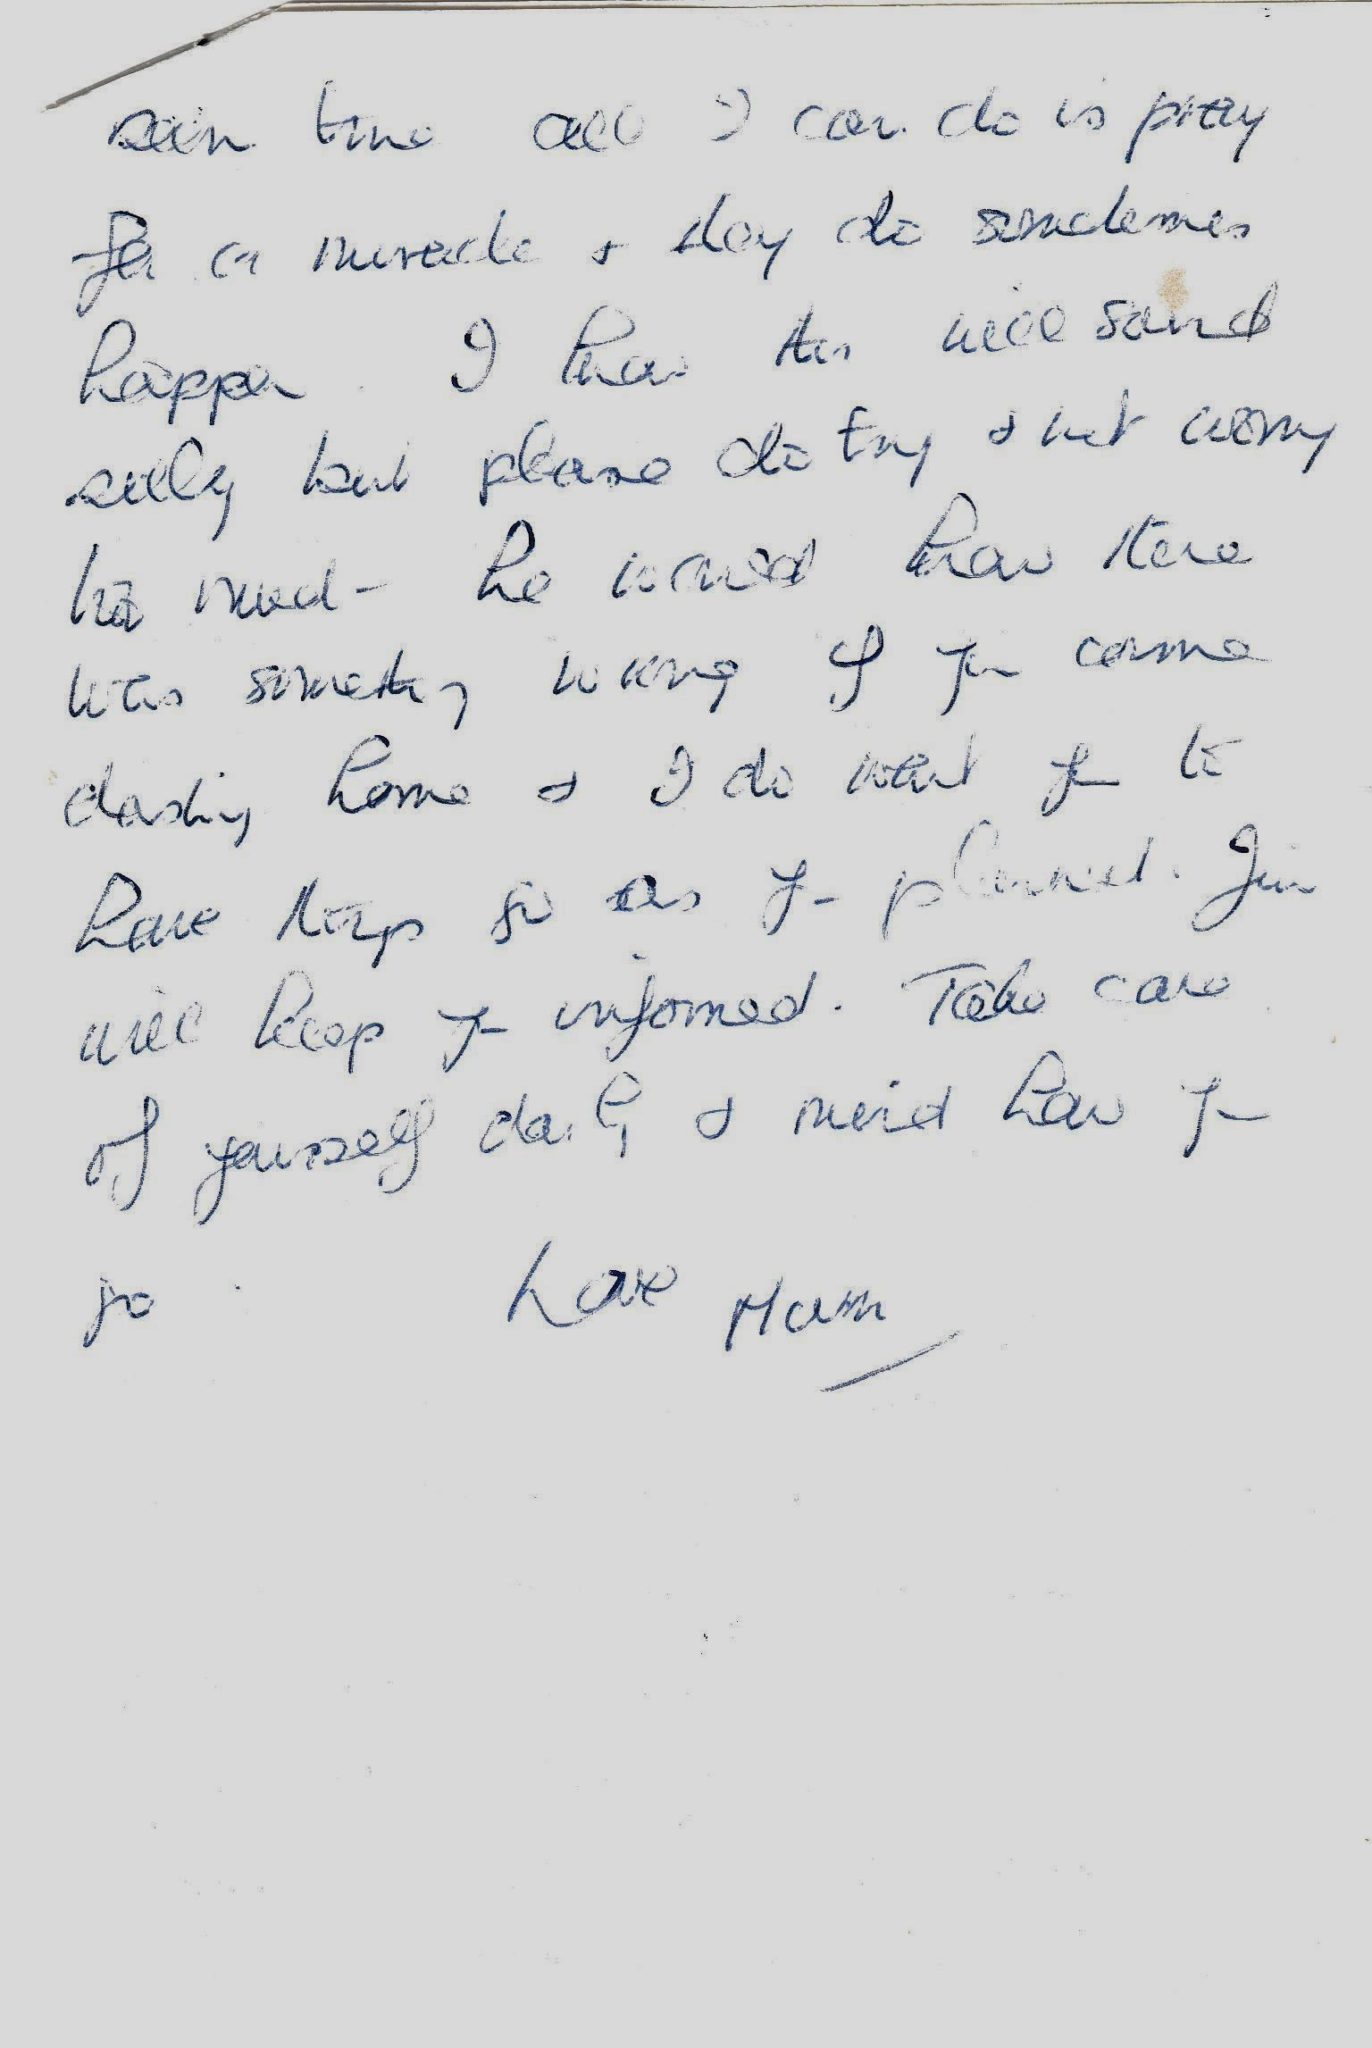 time all I can do is pray
for a miracle & they do sometimes
happen. I know this will sound
silly but please do try & not worry
too much - he would know there
was something wrong if you came
dashing home & I do want you to
have things go as you planned. Jim
will keep you informed. Take care
of yourself darling & mind how you
go. Love Mum